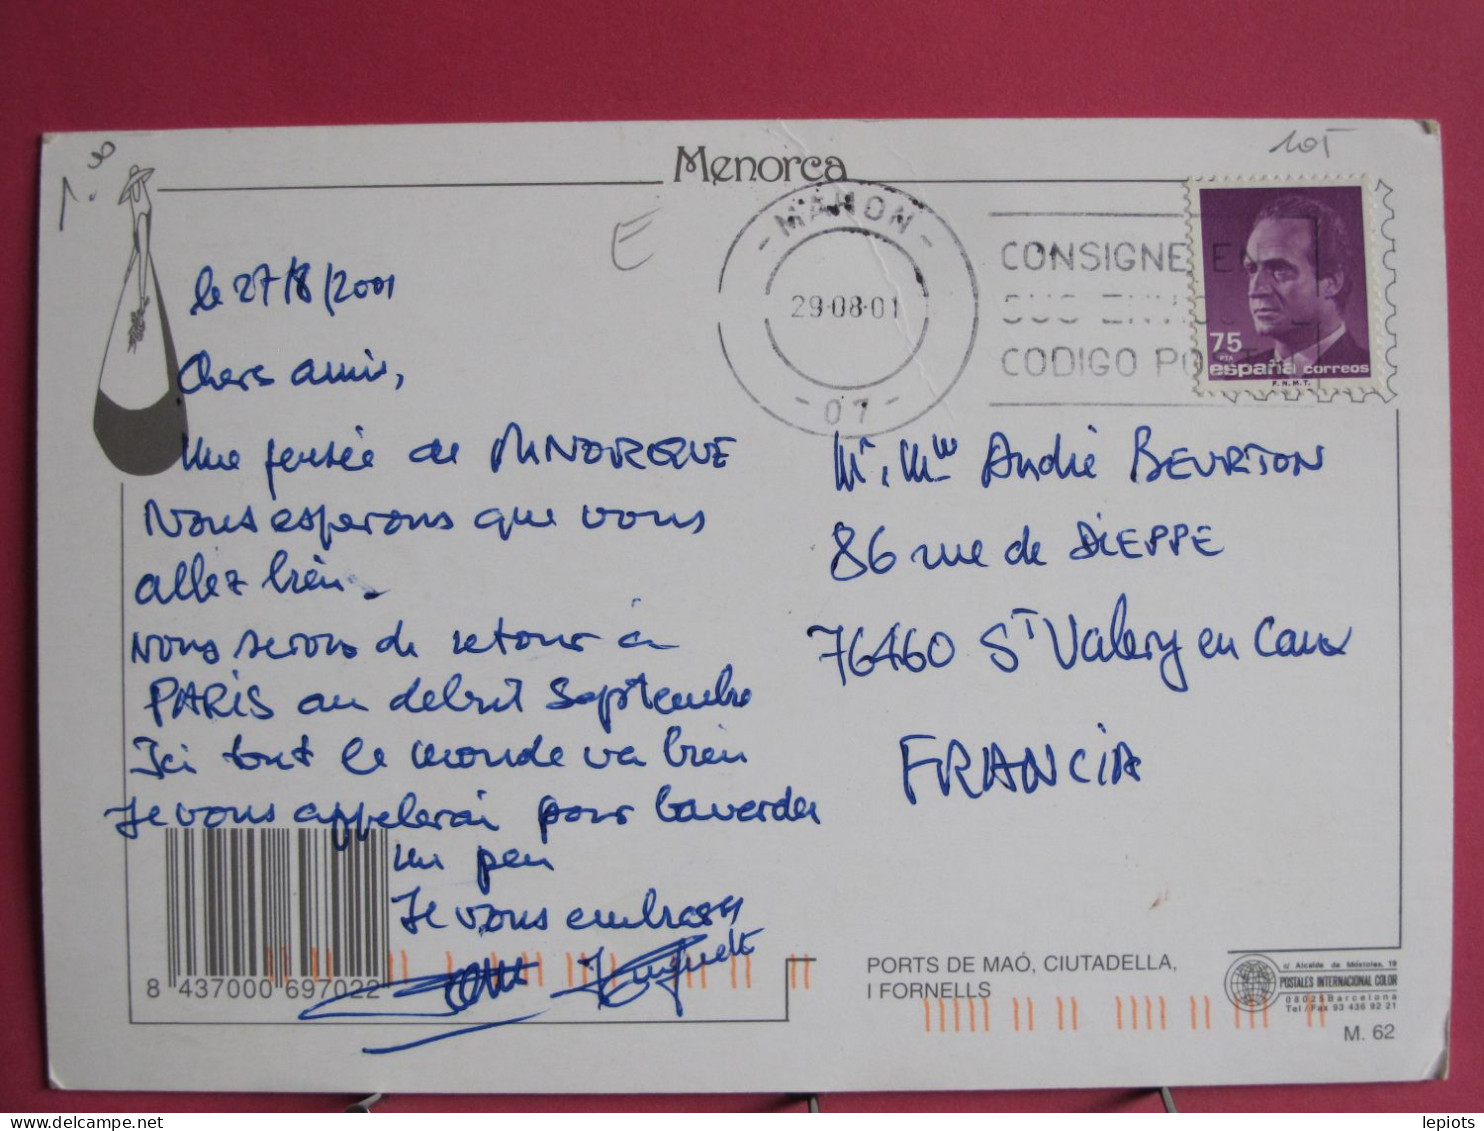 Menorca
10T
E
le 27/8/2001
Chers amis,
Une pensée de MINORQUE
Nous esperons que vous
allez bien.
Nous serons de retour à
PARIS au debut Septembre
Ici tout le monde va bien
Je vous appelerai pour bavarder
un peu
Je vous embrasse
8 437000 697022
MAHON
29-08-01
- 07 -
CONSIGNE EN
SUS ENVIOS EL
CODIGO POSTAL
75
PTA
españa correos
F.N.M.T.
Mr. Mme André BEURTON
86 rue de DIEPPE
76460 St Valery en Caux
FRANCIA
PORTS DE MAÓ, CIUTADELLA,
I FORNELLS
c/ Alcalde de Móstoles, 19
POSTALES INTERNACIONAL COLOR
08025 Barcelona
Tel/Fax 93 436 92 21
M. 62
lepiots